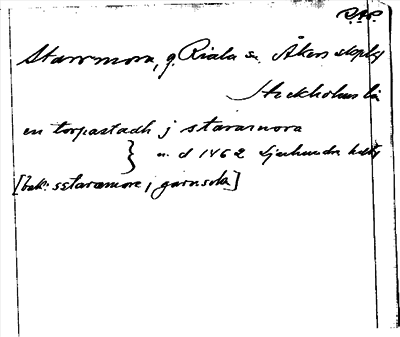 R.A.P.
Starrmora, g. Riala sn Åkers skplg
Stockholms län
en torpastadh j staramora
u. d 1462 Sjuhundra hd
[bak: sstaramore, j garnsola]